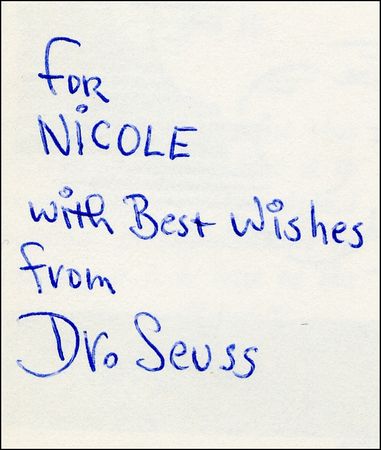 For
NICOLE
with Best Wishes
from
Dr. Seuss